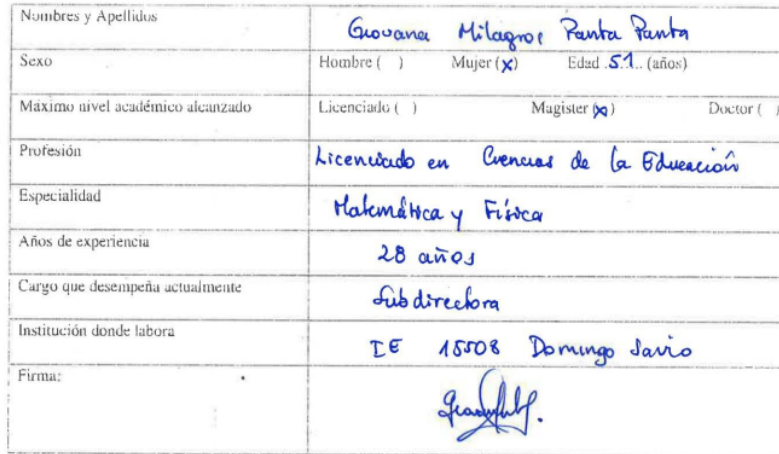 Nombres y Apellidos Giovana Milagros Panta Panta
Sexo Hombre ( ) Mujer (x) Edad .51.. (años)
Máximo nivel académico alcanzado Licenciado ( ) Magister (x) Doctor ( )
Profesión Licenciado en Ciencias de la Educación
Especialidad Matemática y Física
Años de experiencia 28 años
Cargo que desempeña actualmente Subdirectora
Institución donde labora IE 15508 Domingo Savio
Firma: